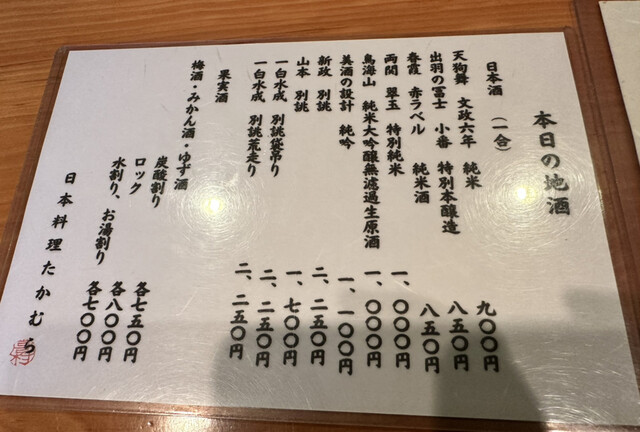 本日の地酒
日本酒 (一合)
天狗舞 文政六年 純米 九〇〇円
出羽の冨士 小番 特別本醸造 八五〇円
春霞 赤ラベル 純米酒 八五〇円
両関 翠玉 特別純米 一、〇〇〇円
鳥海山 純米大吟醸無濾過生原酒 一、〇〇〇円
美酒の設計 純吟 一、一〇〇円
新政 別誂 二、二五〇円
山本 別誂 一、七〇〇円
一白水成 別誂袋吊り 二、二五〇円
一白水成 別誂荒走り 二、二五〇円
果実酒
梅酒・みかん酒・ゆず酒
炭酸割り 各七五〇円
ロック 各八〇〇円
水割り、お湯割り 各七〇〇円
日本料理たかむら